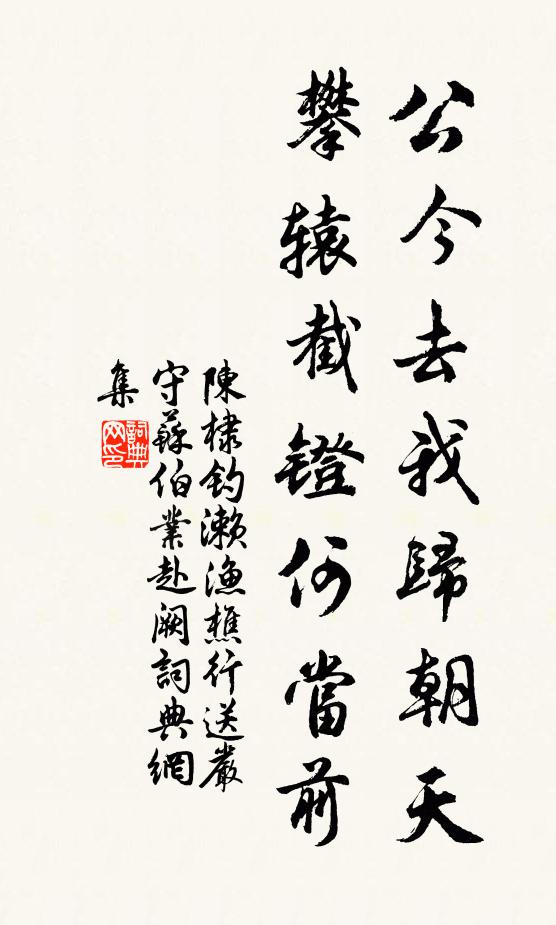 公今去我歸朝天
攀轅截鐙何當前
陳棣釣瀨漁樵行送嚴
守蘇伯業赴闕詞典網
集
詞典
网印